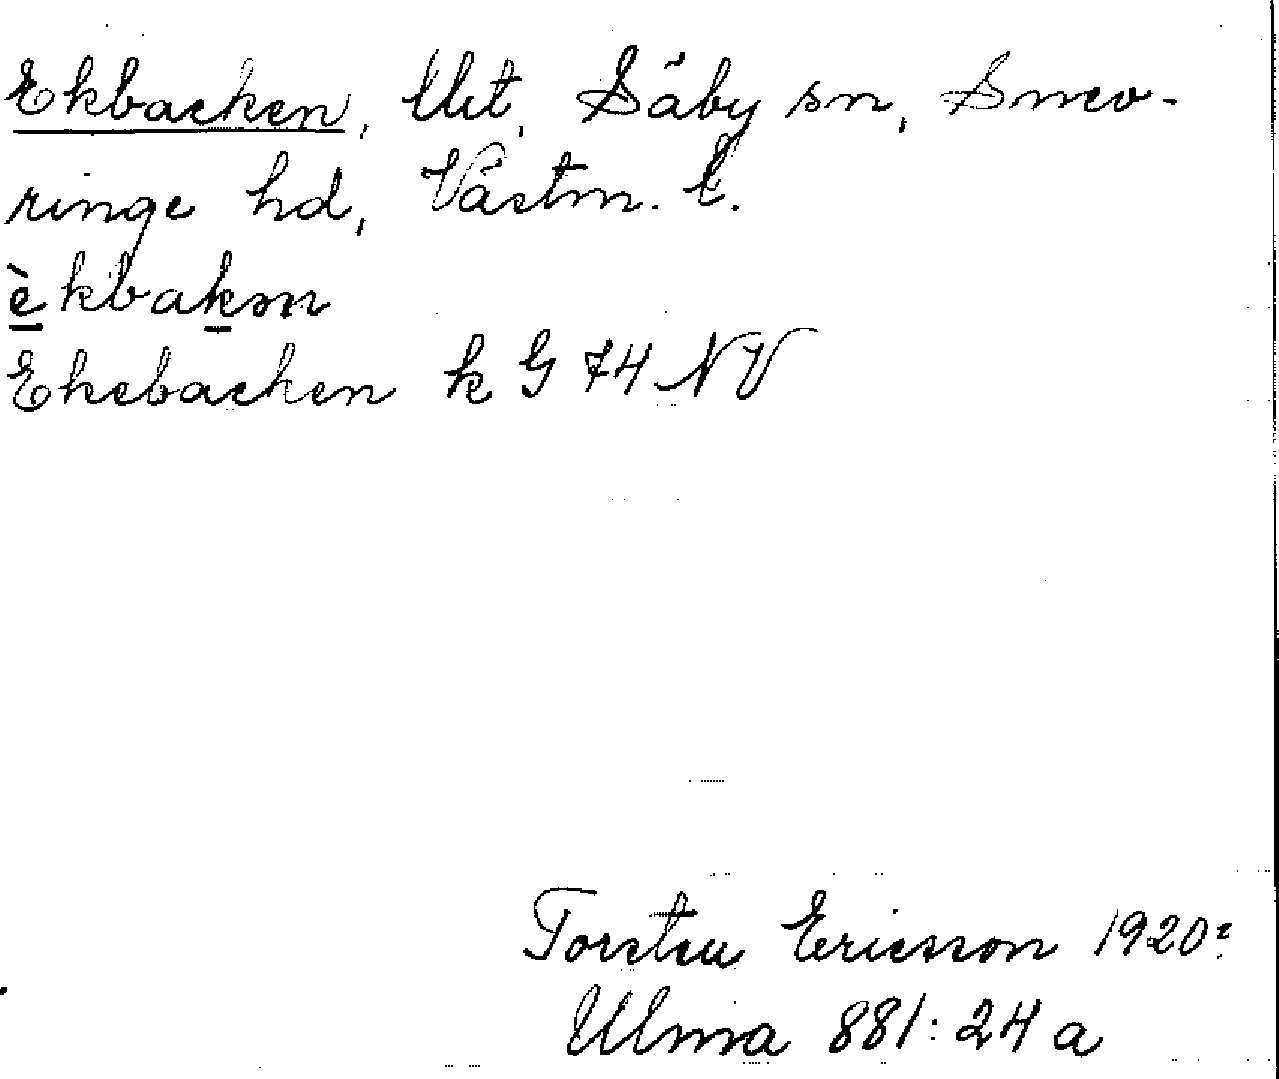 Ekbacken, Ut. Säby sn, Snev-
ringe hd, Västm. l.
èkbakən
Ekebacken k G 74 NV
Torsten Ericsson 1920:
Ulma 881:24 a